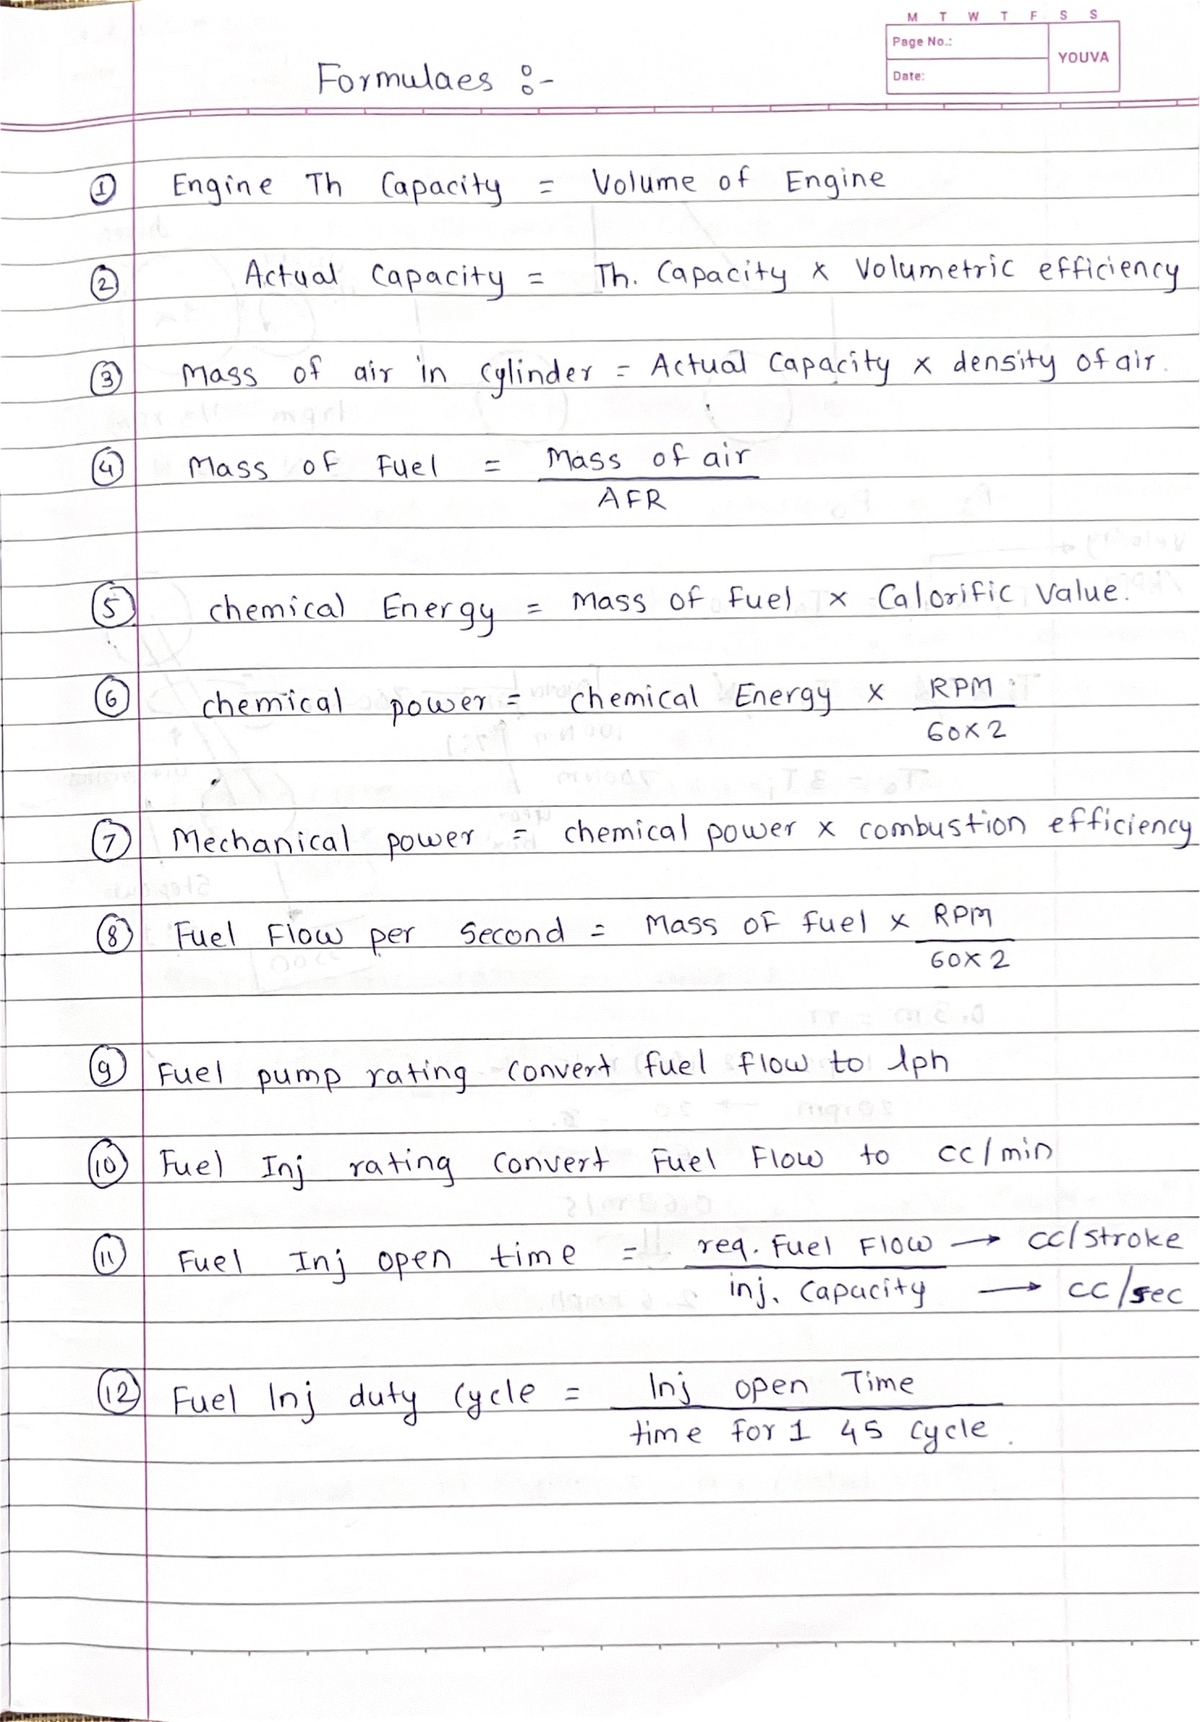 M T W T F S S
Page No.:
YOUVA
Date:
Formulaes :-
① Engine Th Capacity = Volume of Engine
② Actual Capacity = Th. Capacity x Volumetric efficiency
③ Mass of air in cylinder = Actual Capacity x density of air.
④ Mass of Fuel = Mass of air
AFR
⑤ chemical Energy = Mass of fuel x Calorific Value.
⑥ chemical power = chemical Energy x RPM
60x2
⑦ Mechanical power = chemical power x combustion efficiency
⑧ Fuel Flow per Second = Mass of fuel x RPM
60x2
⑨ Fuel pump rating convert fuel flow to lph
⑩ Fuel Inj rating convert Fuel Flow to cc/min
⑪ Fuel Inj open time = req. Fuel Flow → cc/stroke
inj. Capacity → cc/sec
⑫ Fuel Inj duty Cycle = Inj open Time
time for 1 4S Cycle.